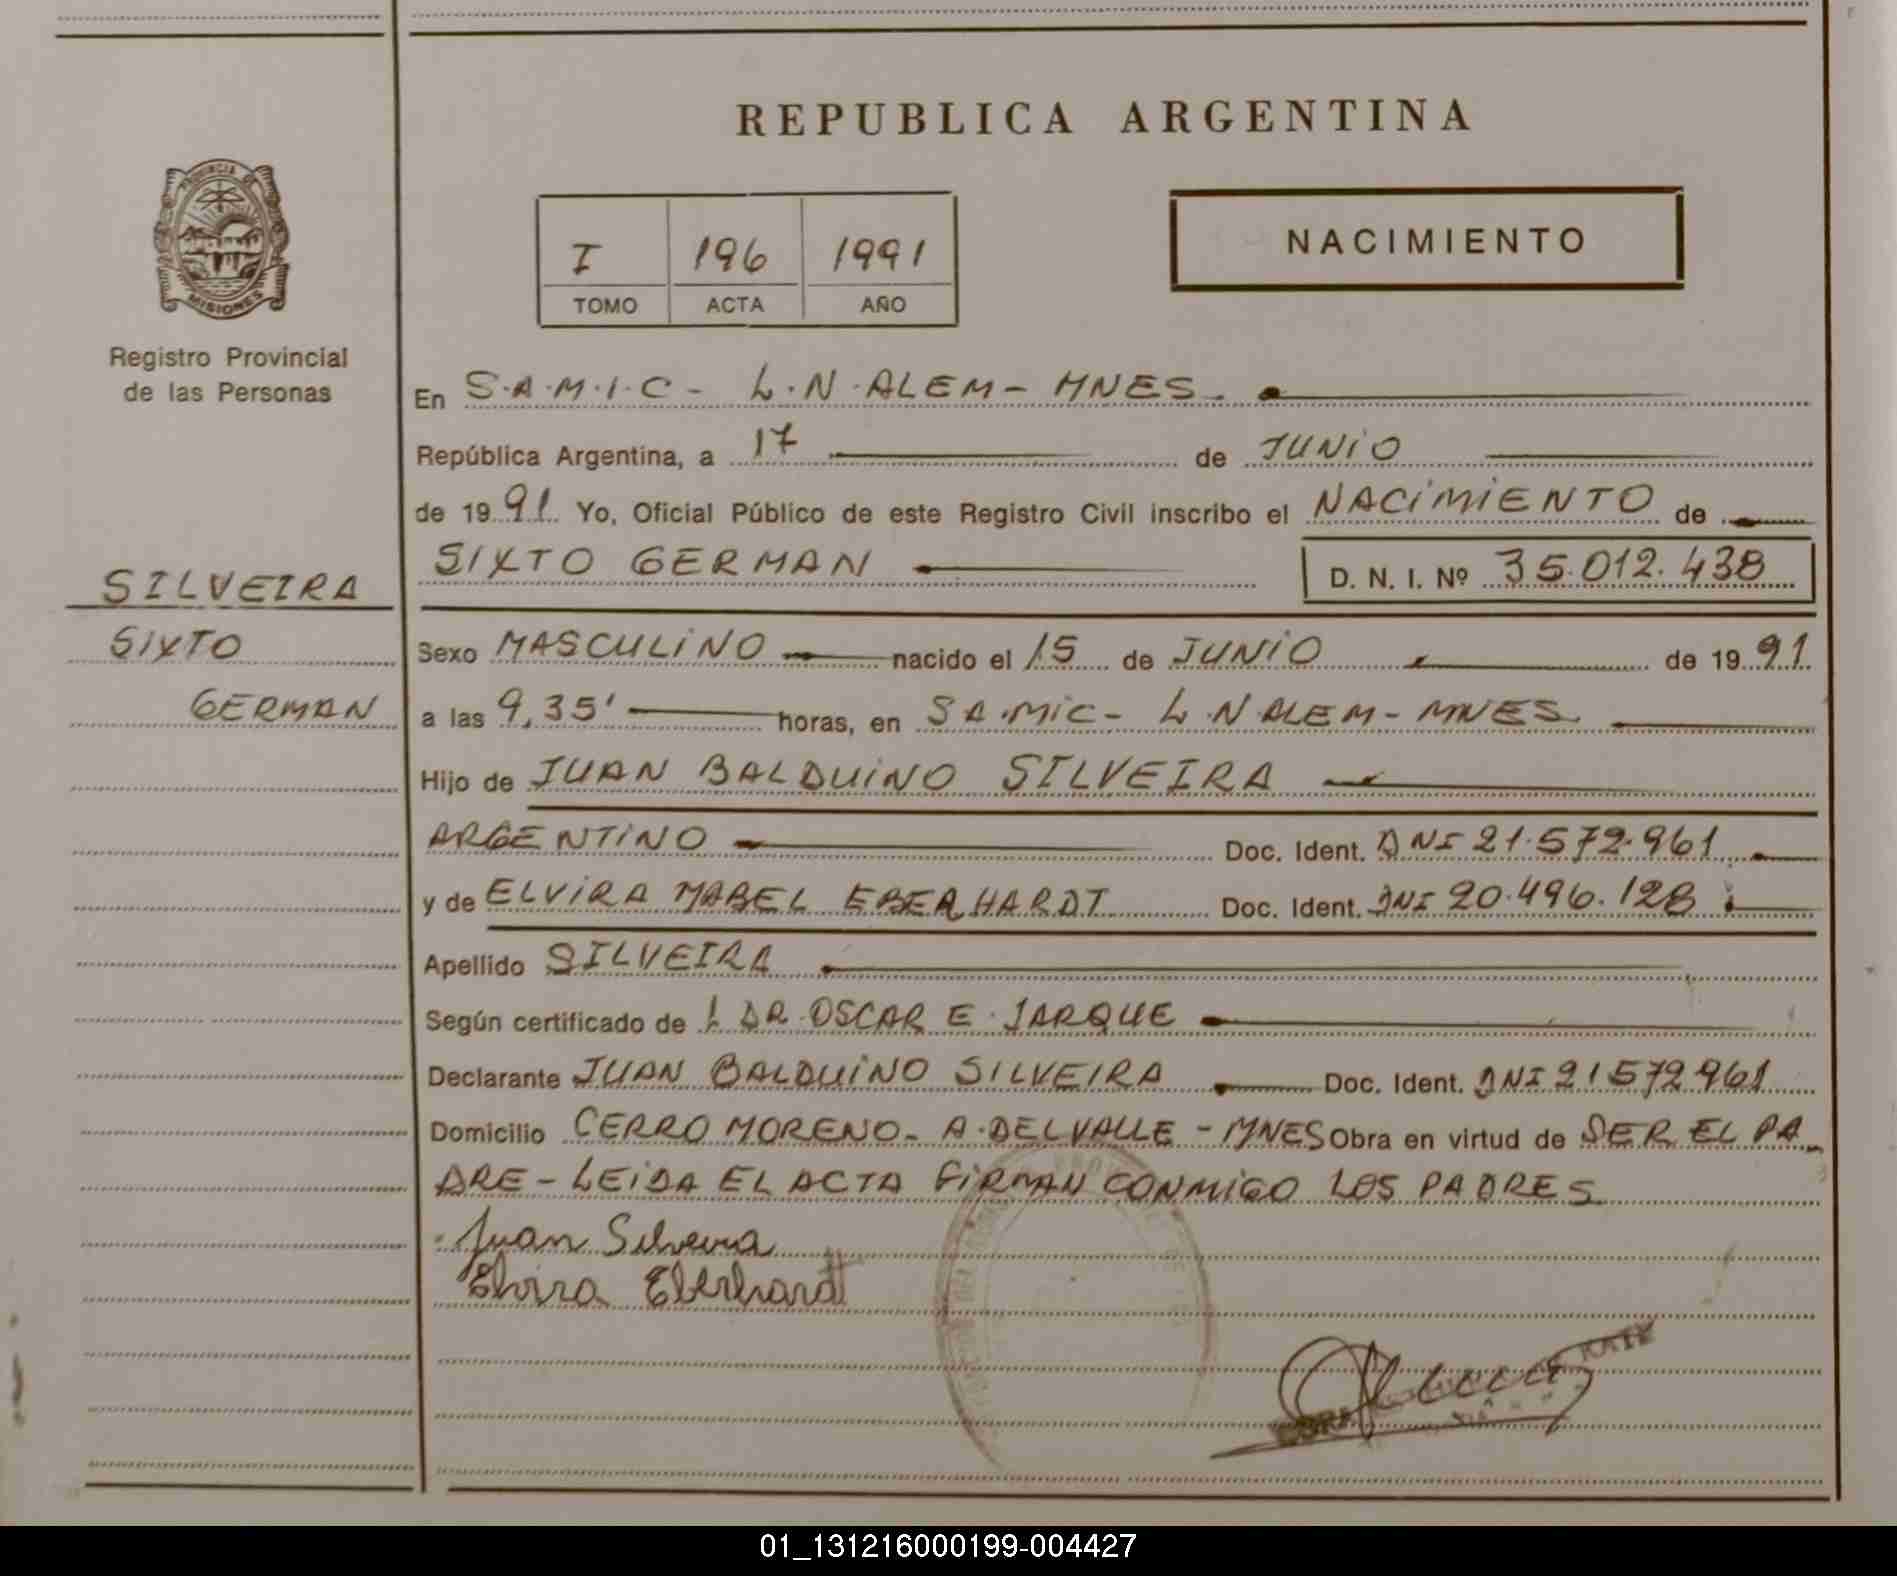 REPUBLICA ARGENTINA
PROVINCIA DE
MISIONES
Registro Provincial
de las Personas
I 196 1991
TOMO ACTA AÑO
NACIMIENTO
En S.A.M.I.C- L.N.ALEM- MNES.
República Argentina, a 17 de JUNIO
de 1991 Yo, Oficial Público de este Registro Civil inscribo el NACIMIENTO de
SIXTO GERMAN D. N. I. Nº 35.012.438
SILVEIRA
SIXTO
GERMAN
Sexo MASCULINO nacido el 15 de JUNIO de 1991
a las 9,35' horas, en S A.MIC- L.N.ALEM- MNES.
Hijo de JUAN BALDUINO SILVEIRA
ARGENTINO Doc. Ident. DNI 21.572.961
y de ELVIRA MABEL EBERHARDT Doc. Ident. DNI 20.496.128
Apellido SILVEIRA
Según certificado de DR. OSCAR E. JARQUE
Declarante JUAN BALDUINO SILVEIRA Doc. Ident. DNI 21572961
Domicilio CERRO MORENO- A.DELVALLE - MNES Obra en virtud de SER EL PA
DRE - LEIDA EL ACTA FIRMAN CONMIGO LOS PADRES
Juan Silveira
Elvira Eberhardt
01_131216000199-004427